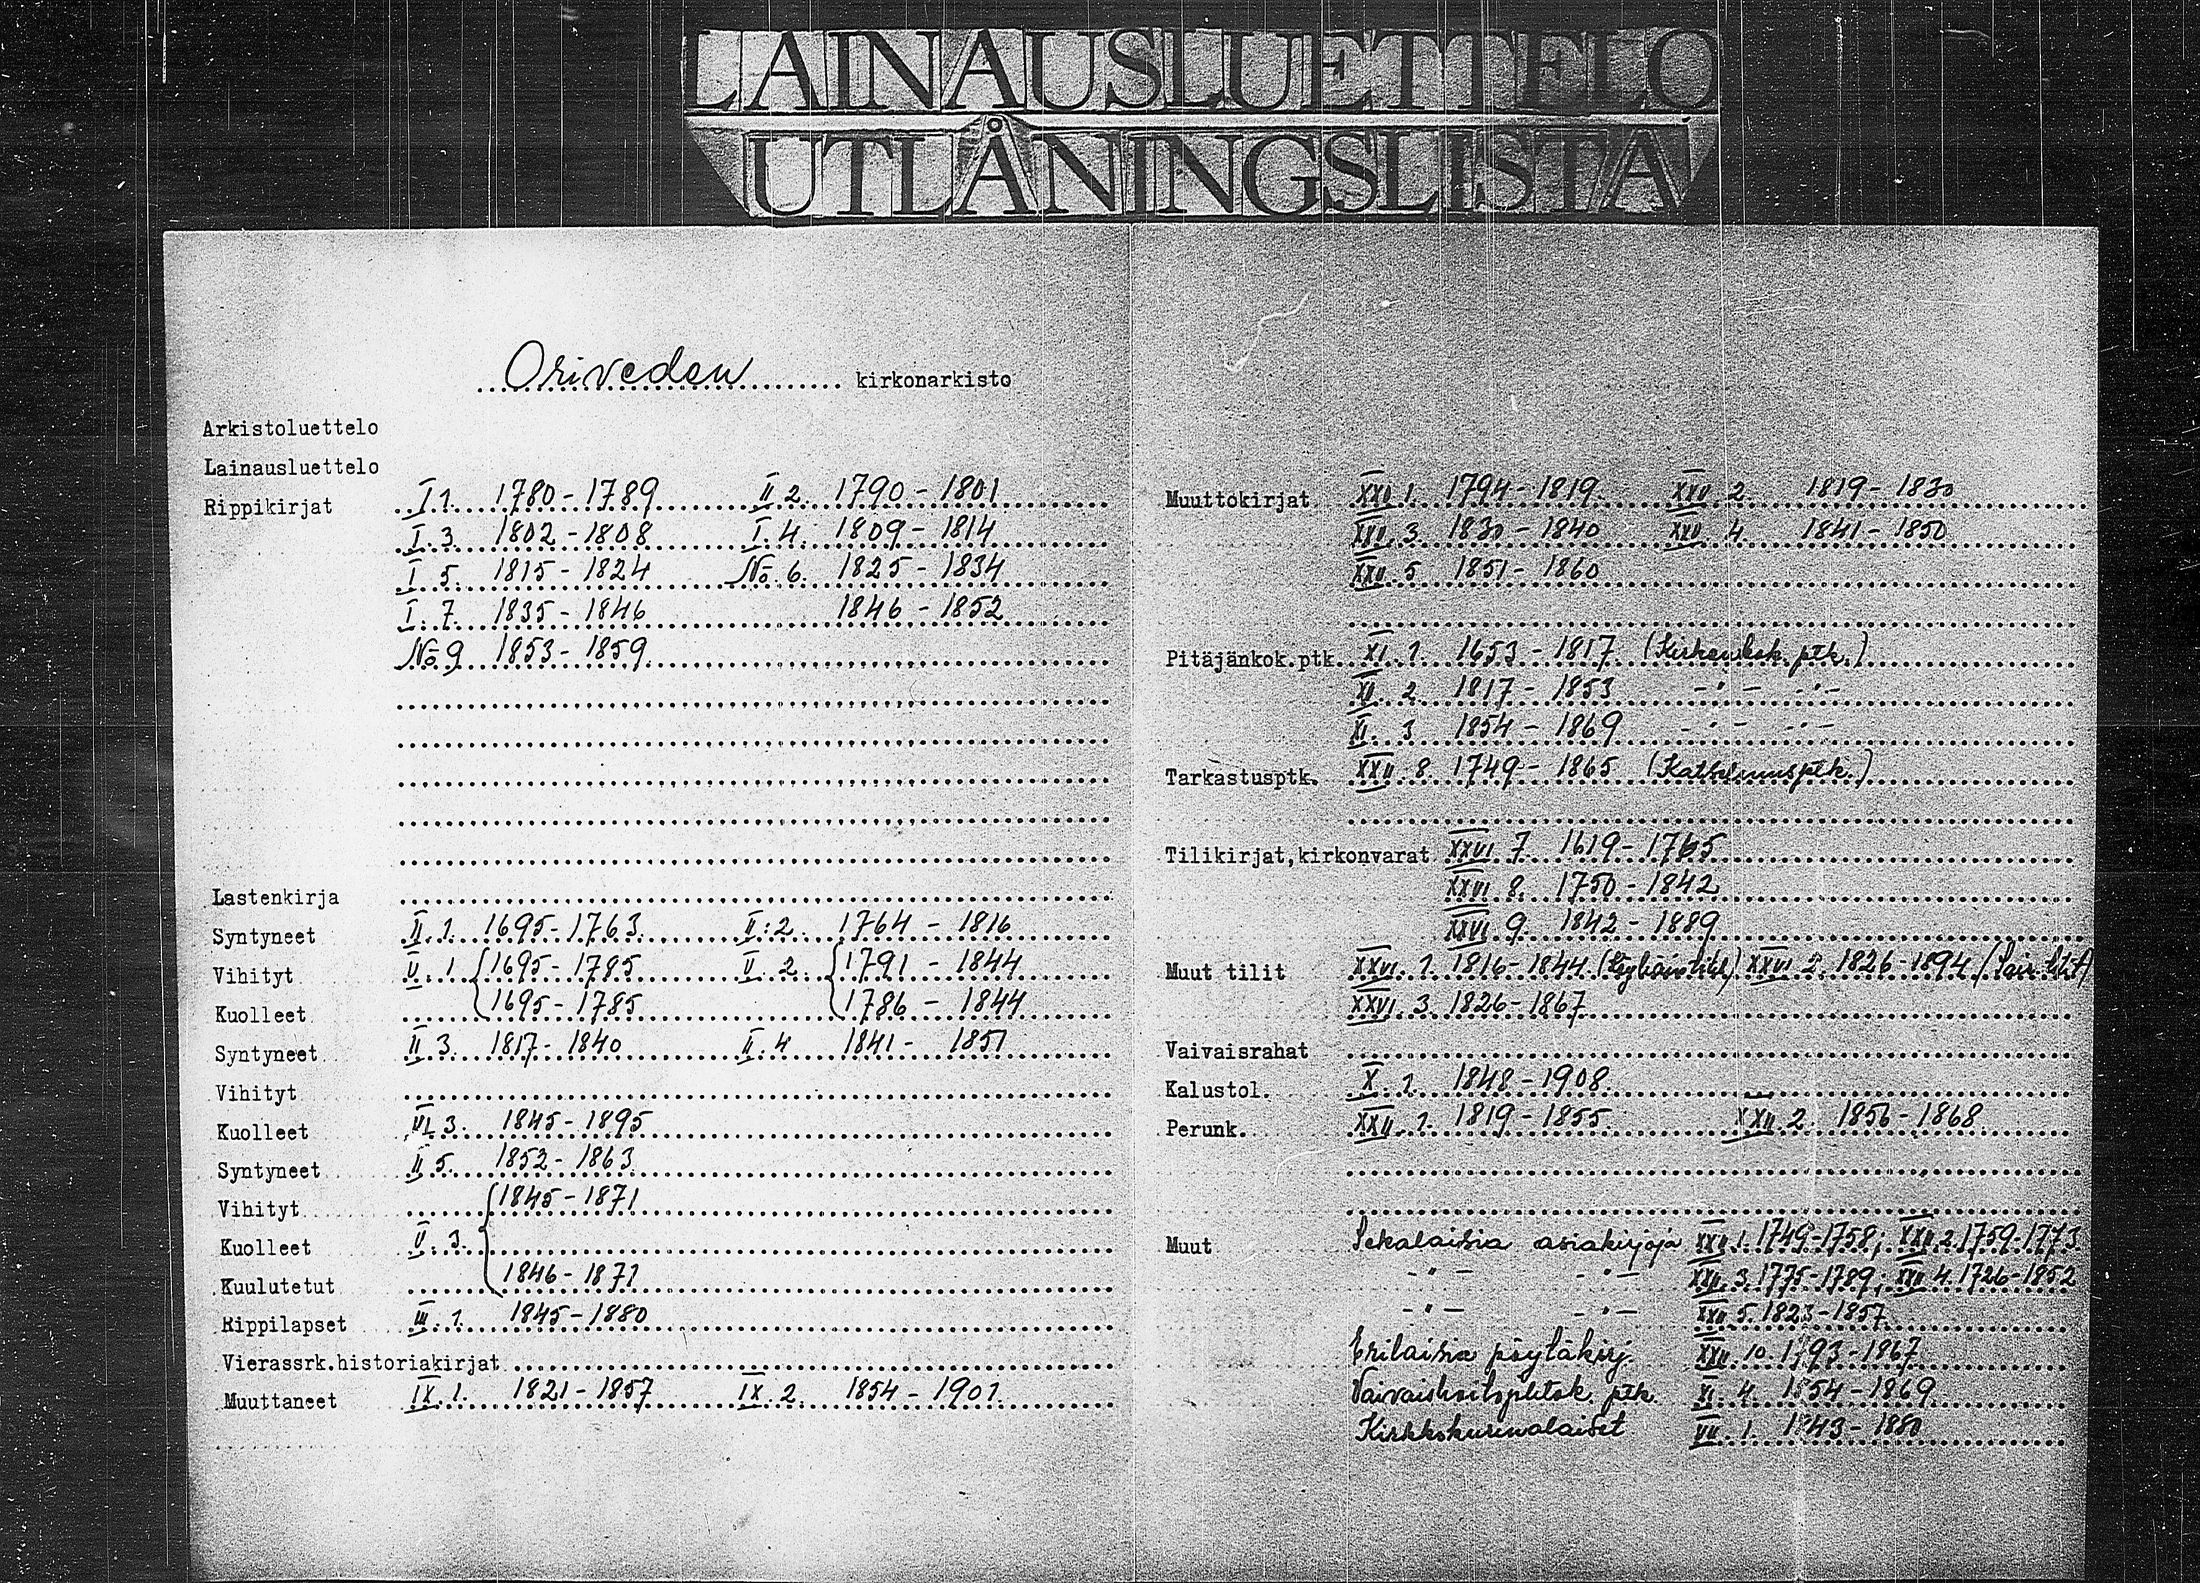 LAINAUSLUETTELO
UTLÅNINGSLISTA
Oriveden kirkonarkisto
Arkistoluettelo
Lainausluettelo
Rippikirjat I 1. 1780-1789 II 2. 1790-1801
I. 3 1802-1808 I. 4. 1809-1814
I 5. 1815-1824 No 6. 1825-1834
I. 7. 1835-1846 1846-1852
No 9 1853-1859
Lastenkirja
Syntyneet II. 1. 1695-1763 II: 2. 1764-1816
Vihityt V. 1 1695-1785 V. 2. 1791-1844
Kuolleet 1695-1785 1786-1844
Syntyneet II 3. 1817-1840 II. 4 1841-1851
Vihityt
Kuolleet VI 3. 1845-1895
Syntyneet II 5. 1852-1863
Vihityt 1845-1871
Kuolleet V. 3.
Kuulutetut 1846-1871
Rippilapset III. 1. 1845-1880
Vierassrk.historiakirjat
Muuttaneet IX. 1. 1821-1857 IX 2. 1854-1901
Muuttokirjat XXV 1. 1794-1819 XXV 2. 1819-1830
XXV. 3. 1830-1840 XXV 4. 1841-1850
XXV. 5 1851-1860
Pitäjänkok.ptk. XI. 1. 1653-1817 (Kirkonkok. ptk.)
XI. 2. 1817-1853 -"- -"-
XI. 3 1854-1869 -"- -"-
Tarkastusptk. XXII. 8. 1749-1865 (Katselmusptk.)
Tilikirjat,kirkonvarat XXVI 7. 1619-1765
XXVI 8. 1750-1842
XXVI 9. 1842-1889
Muut tilit XXVI. 1. 1816-1844 XXVI 2. 1826-1894
XXVI. 3. 1826-1867
Vaivaisrahat
Kalustol. X. 1. 1848-1908.
Perunk. XXII. 1. 1819-1855 XXII. 2. 1856-1868
Muut Sekalaisia asiakirjoja XXII. 1. 1749-1758; XXII 2. 1759-1773
-"- -"- XXII. 3. 1775-1789; XXII 4. 1726-1852
-"- -"- XXII 5. 1823-1857
Erilaisia pöytäkirj. XXII. 10. 1793-1867
Vaivaishoito ptk. XI. 4. 1854-1869
Kirkkokurinalaiset VII. 1. 1843-1880